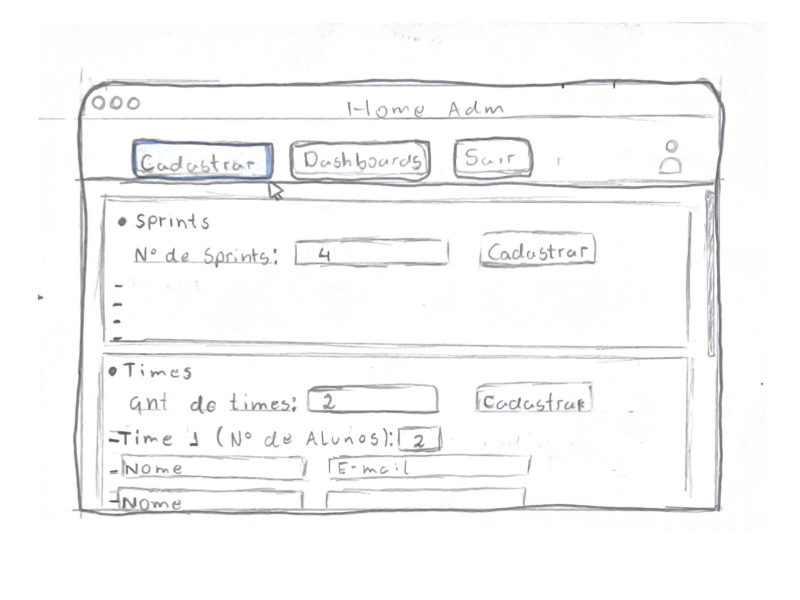 Home Adm
Cadastrar Dashboards Sair
• Sprints
Nº de Sprints: 4 Cadastrar
-
-
-
-
• Times
qnt de times: 2 Cadastrar
-Time 1 (Nº de Alunos): 2
- Nome E-mail
- Nome